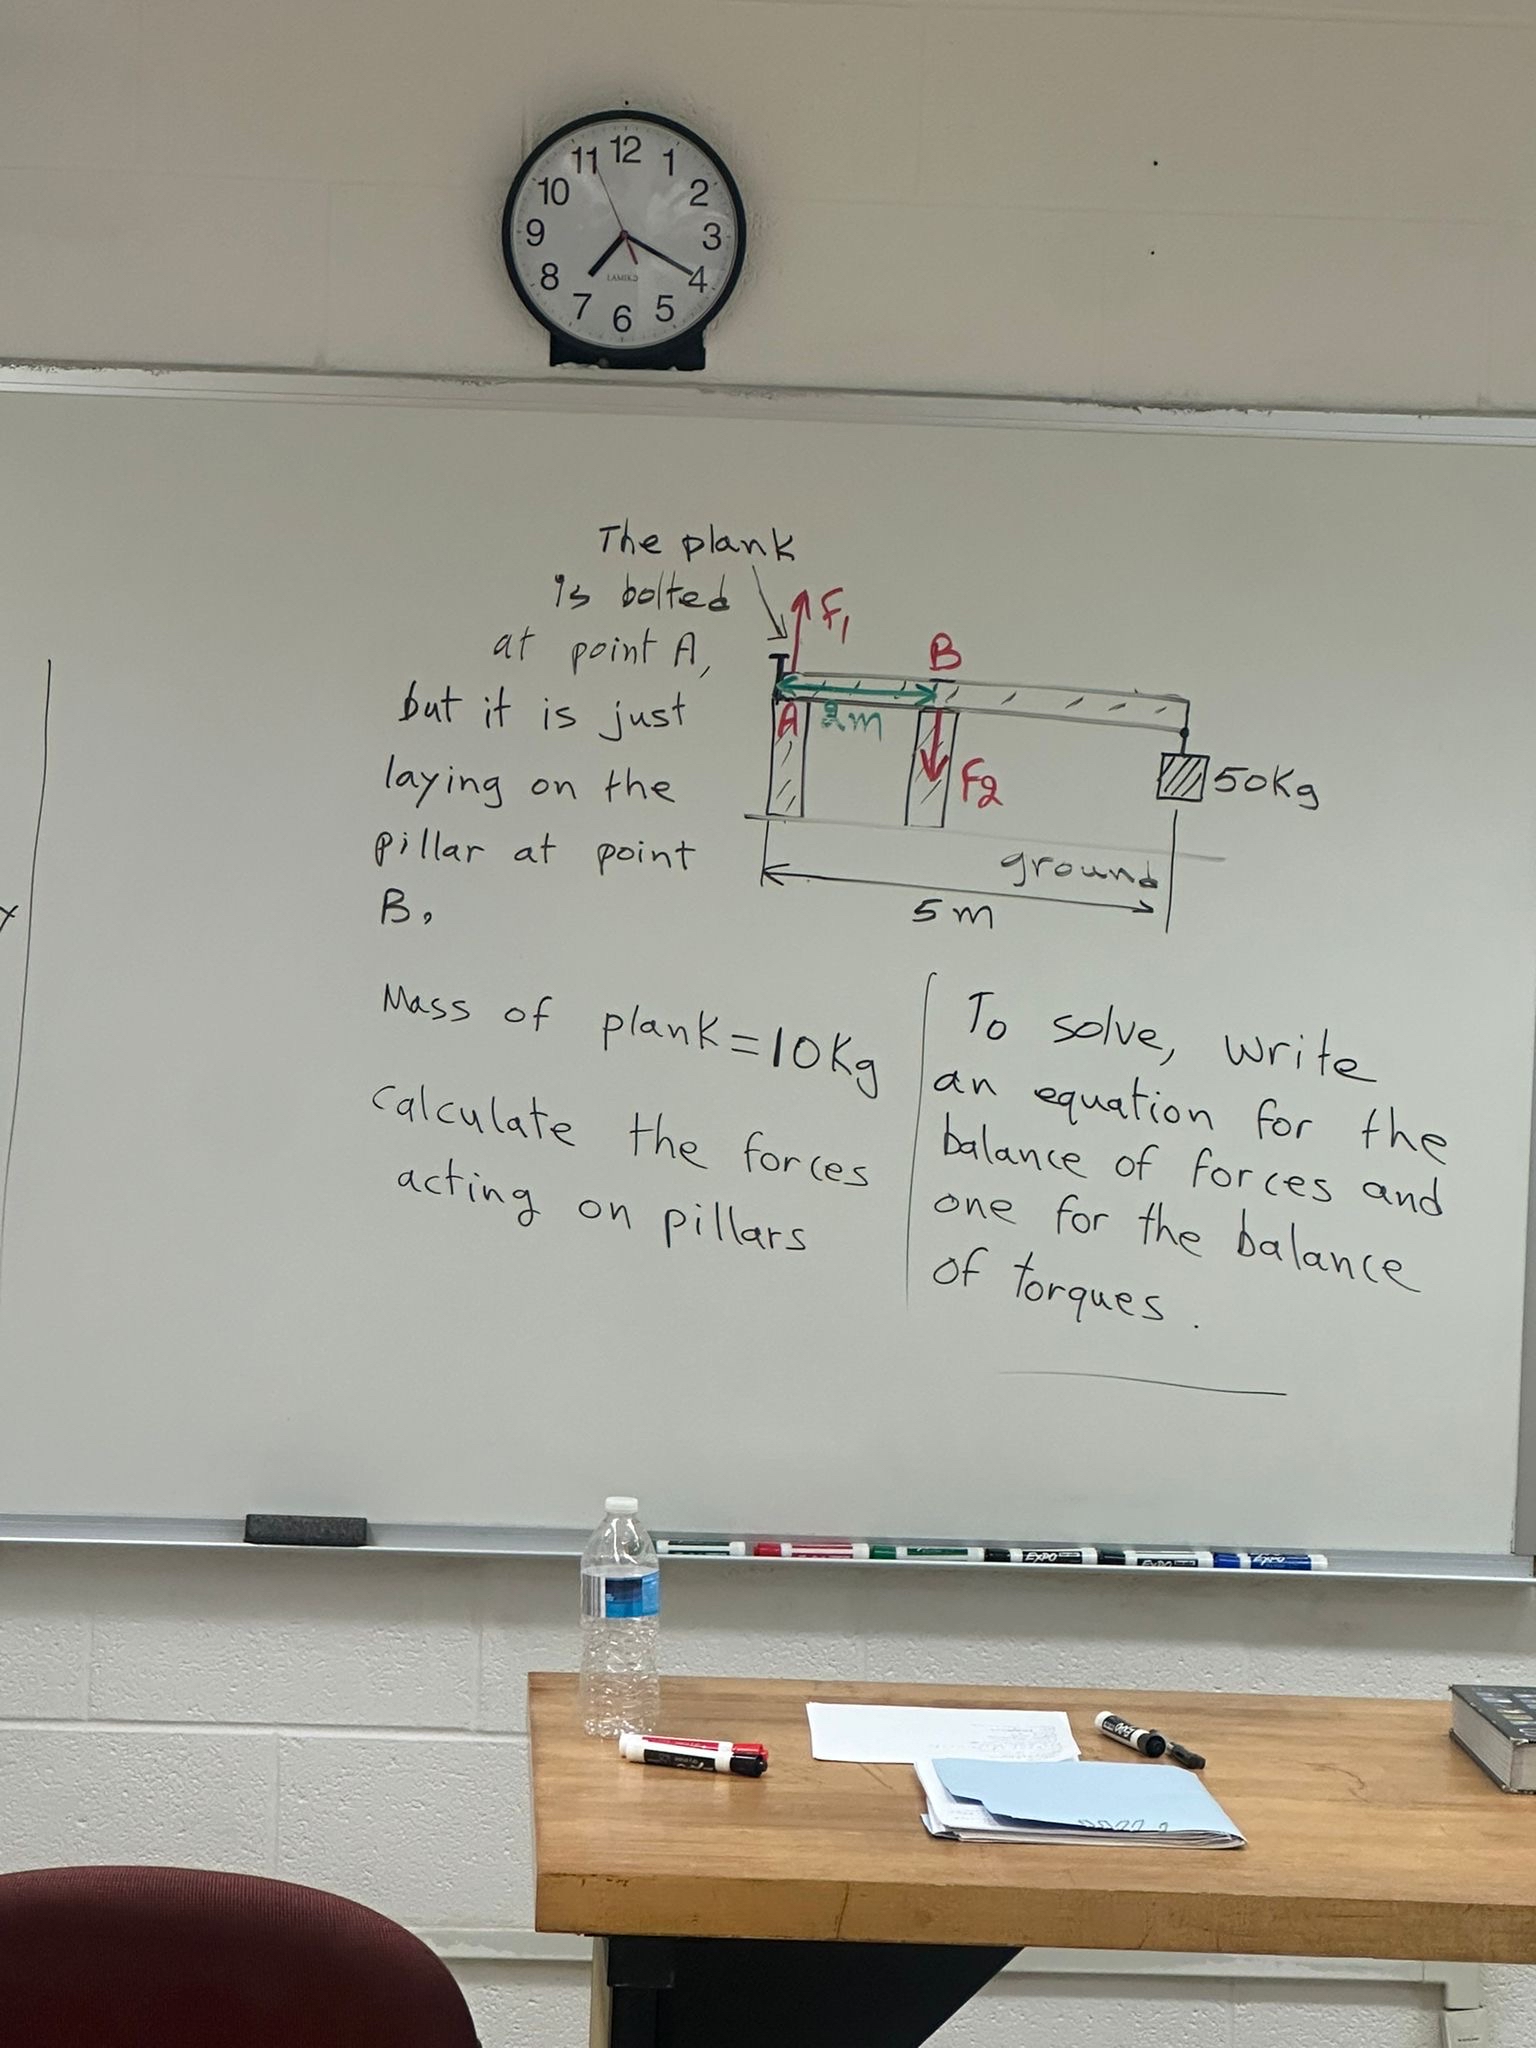 11 12 1
10 2
9 3
8 4
7 6 5
The plank
is bolted
at point A,
but it is just
laying on the
pillar at point
B,
F1
B
A 2m
F2
50Kg
ground
5m
Mass of plank=10Kg
Calculate the forces
acting on pillars
To solve, write
an equation for the
balance of forces and
one for the balance
of torques.
EXPO
EXPO
EXPO
EXPO